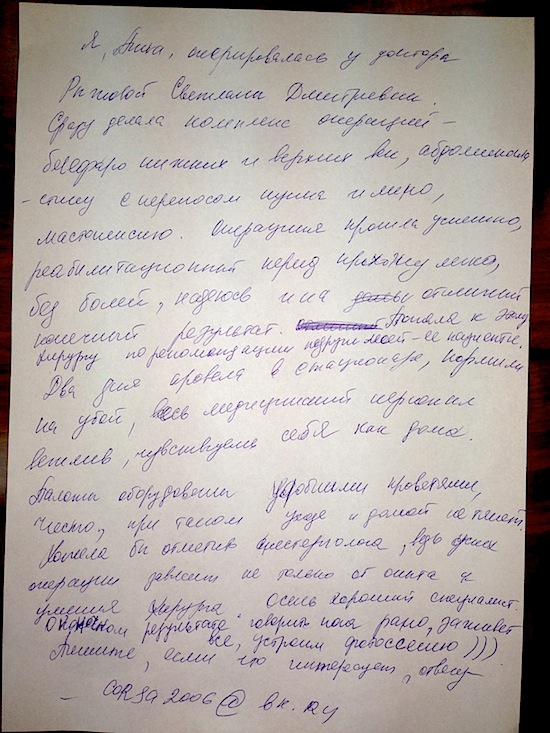 Я, Анна, оперировалась у доктора
Рыжовой Светланы Дмитриевны.
Сразу делала комплекс операций -
блефаро нижних и верхних век, абдоминопла
-стику с переносом пупка и липо,
мастопексию. Операция прошла успешно,
реабилитационный период прохожу легко,
без болей, надеюсь и на отличный
конечный результат. Попала к этому
хирургу по рекомендации подруги моей - ее пациентки.
Два дня провела в стационаре, кормили
на убой, весь медицинский персонал
вежлив, чувствуешь себя как дома.
Палаты оборудованы удобными кроватями,
чисто, при таком уходе и домой не тянет.
Хотела бы отметить анестезиолога, ведь риск
операции зависит не только от опыта и
умения хирурга. Очень хороший специалист.
О конечном результате говорить пока рано, заживет
все, устроим фотосессию )))
Пишите, если что интересует, отвечу
- corsa2006@bk.ru